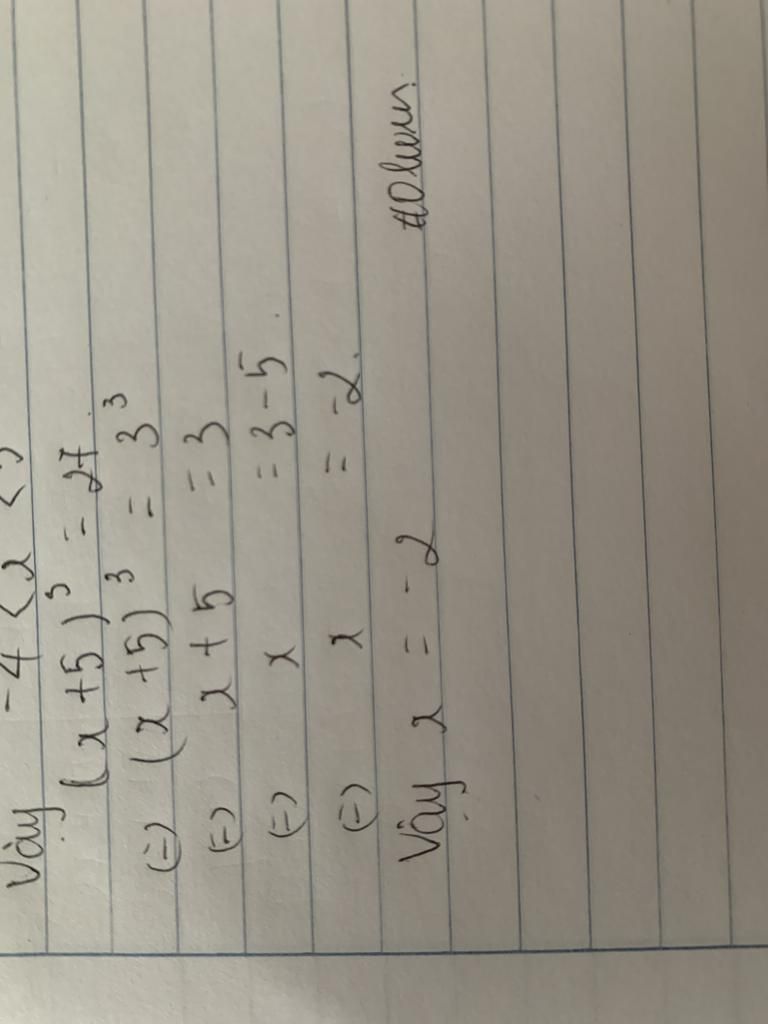 Vậy -4 < x <
(x+5)³ = 27.
(=) (x+5)³ = 3³
(=) x+5 = 3
(=) x = 3-5.
(=) x = -2.
Vậy x = -2 #Olwen.